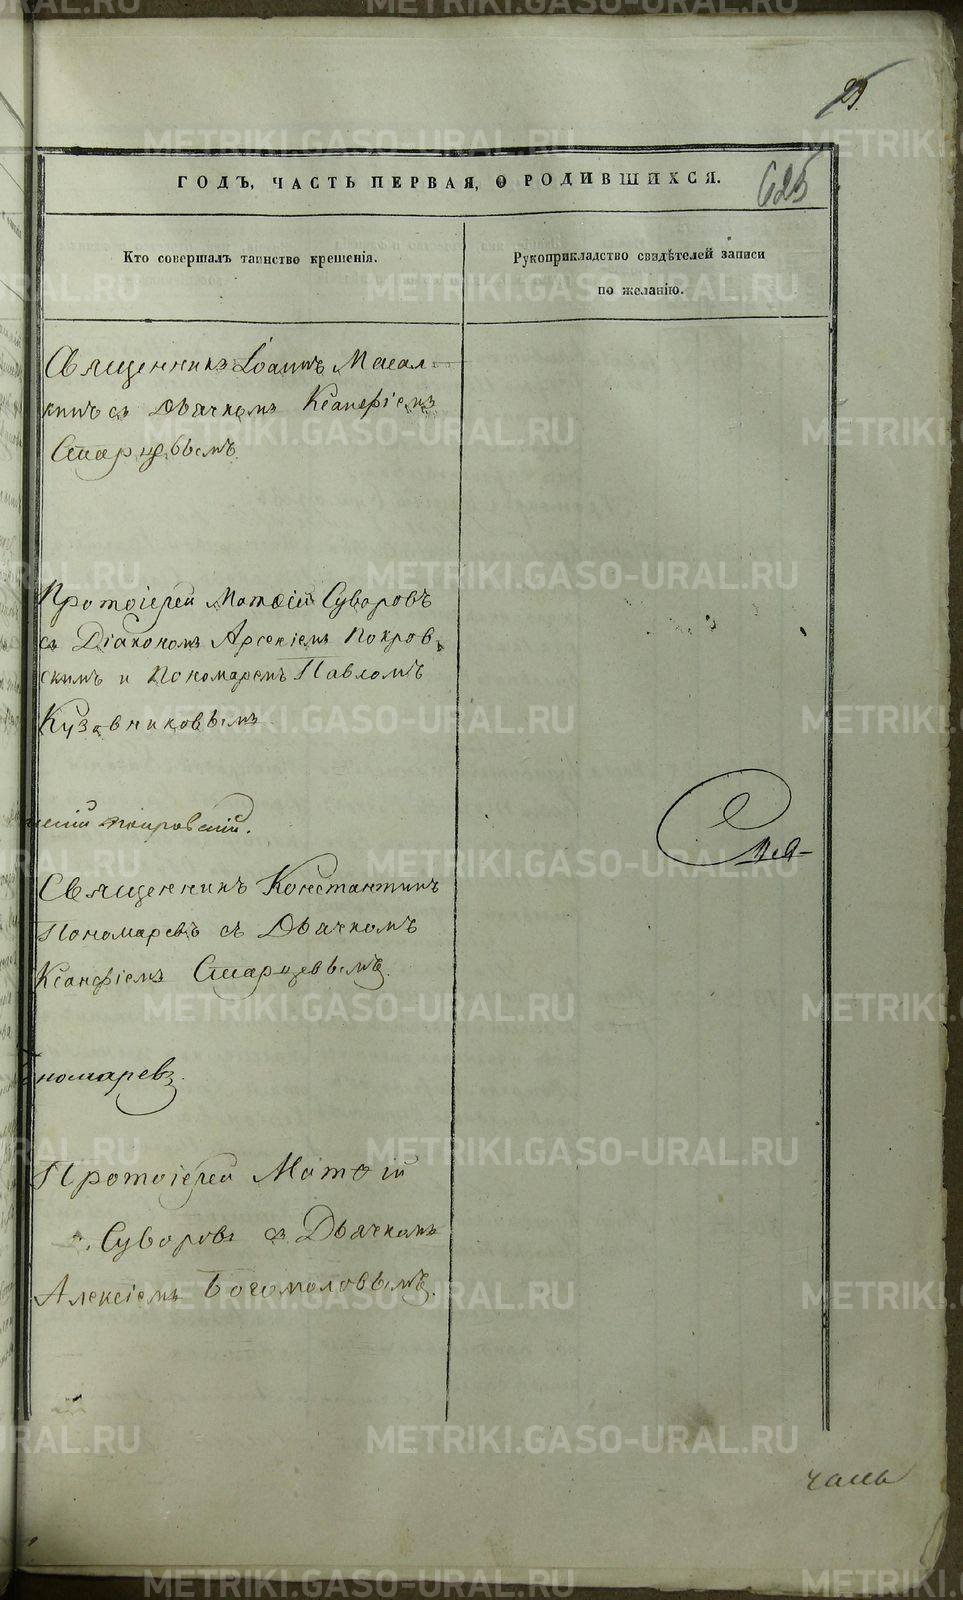 25.
625
ГОДЪ, ЧАСТЬ ПЕРВАЯ, О РОДИВШИХСЯ.
Кто совершалъ таинство крещенія.
Рукоприкладство свидѣтелей записи
по желанію.
Священникъ Іоаннъ Масал-
кинъ съ Дьячкомъ Ксанфіемъ
Старцевымъ.
Протоіерей Матѳій Суворовъ
съ Діакономъ Арсеніемъ Покров-
скимъ и Пономаремъ Павломъ
Кузовниковымъ
Покровскій.
Священникъ Константинъ
Пономаревъ съ Дьячкомъ
Ксанфіемъ Старцевымъ.
номаревъ.
Протоіерей Матѳій
Суворовъ съ Дьячкомъ
Алексіемъ Богомоловымъ.
METRIKI.GASO-URAL.RU